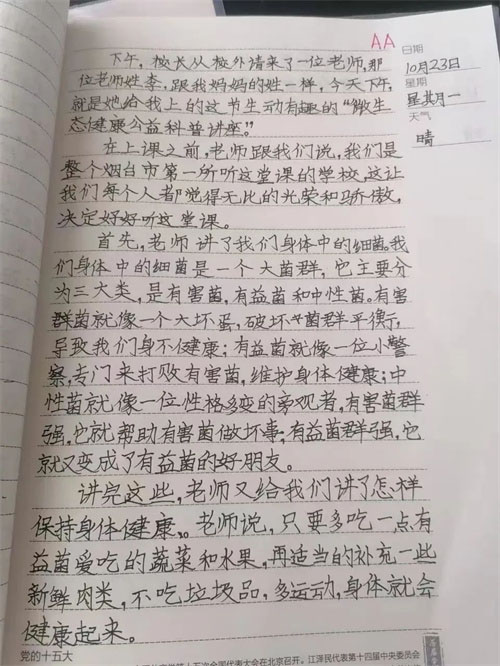 AA
日期
10月23日
星期
星其月一
天气
晴
下午，校长从校外请来了一位老师，那
位老师姓李，跟我妈妈的姓一样，今天下午，
就是她给我上的这节生动有趣的“微生
态健康公益科普讲座。”
在上课之前，老师跟我们说，我们是
整个烟台市第一所听这堂课的学校，这让
我们每个人都觉得无比的光荣和骄傲，
决定好好听这堂课。
首先，老师讲了我们身体中的细菌。我
们身体中的细菌是一个大菌群，它主要分
为三大类，是有害菌，有益菌和中性菌。有害
群菌就像一个大坏蛋，破坏菌群平衡，
导致我们身不健康；有益菌就像一位小警
察，专门来打败有害菌，维护身体健康；中
性菌就像一位性格多变的旁观者，有害菌群
强，它就帮助有害菌做坏事；有益菌群强，它
就又变成了有益菌的好朋友。
讲完这些，老师又给我们讲了怎样
保持身体健康。老师说，只要多吃一点有
益菌爱吃的蔬菜和水果，再适当的补充一些
新鲜肉类，不吃垃圾品，多运动，身体就会
健康起来。
党的十五大
次全国代表大会在北京召开。江泽民代表第十四届中央委员会